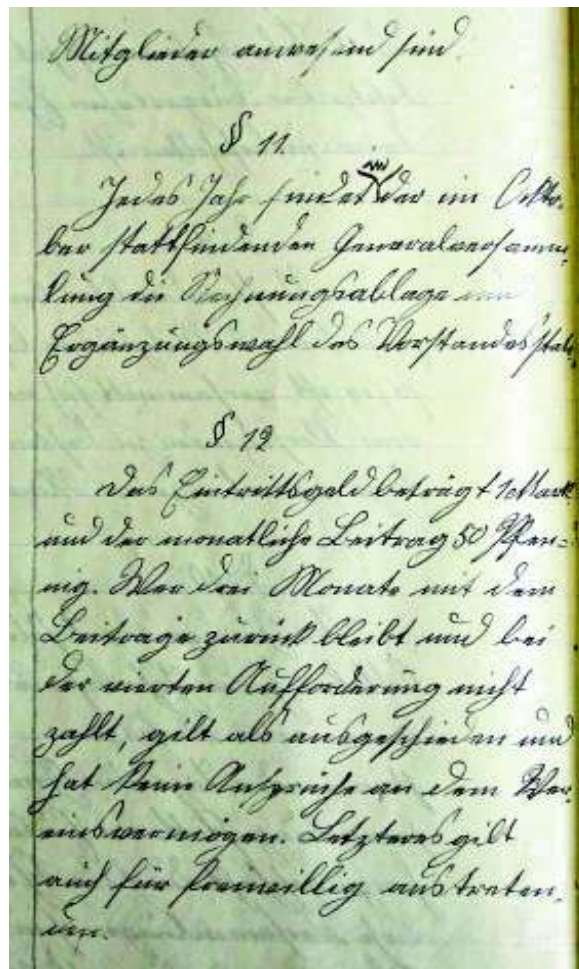 Mitglieder anwesend sind.
§ 11
Jedes Jahr findet in der im Okto-
ber stattfindenden Generalversamm-
lung die Rechnungsablage und
Ergänzungswahl des Vorstandes statt.
§ 12
Das Eintrittsgeld beträgt 1 Mark
und der monatliche Beitrag 50 Pfen-
nig. Wer drei Monate mit dem
Beitrage zurück bleibt und bei
der vierten Aufforderung nicht
zahlt, gilt als ausgeschieden und
hat keine Ansprüche an dem Ver-
einsvermögen. Letzteres gilt
auch für freiwillig austreten-
den.